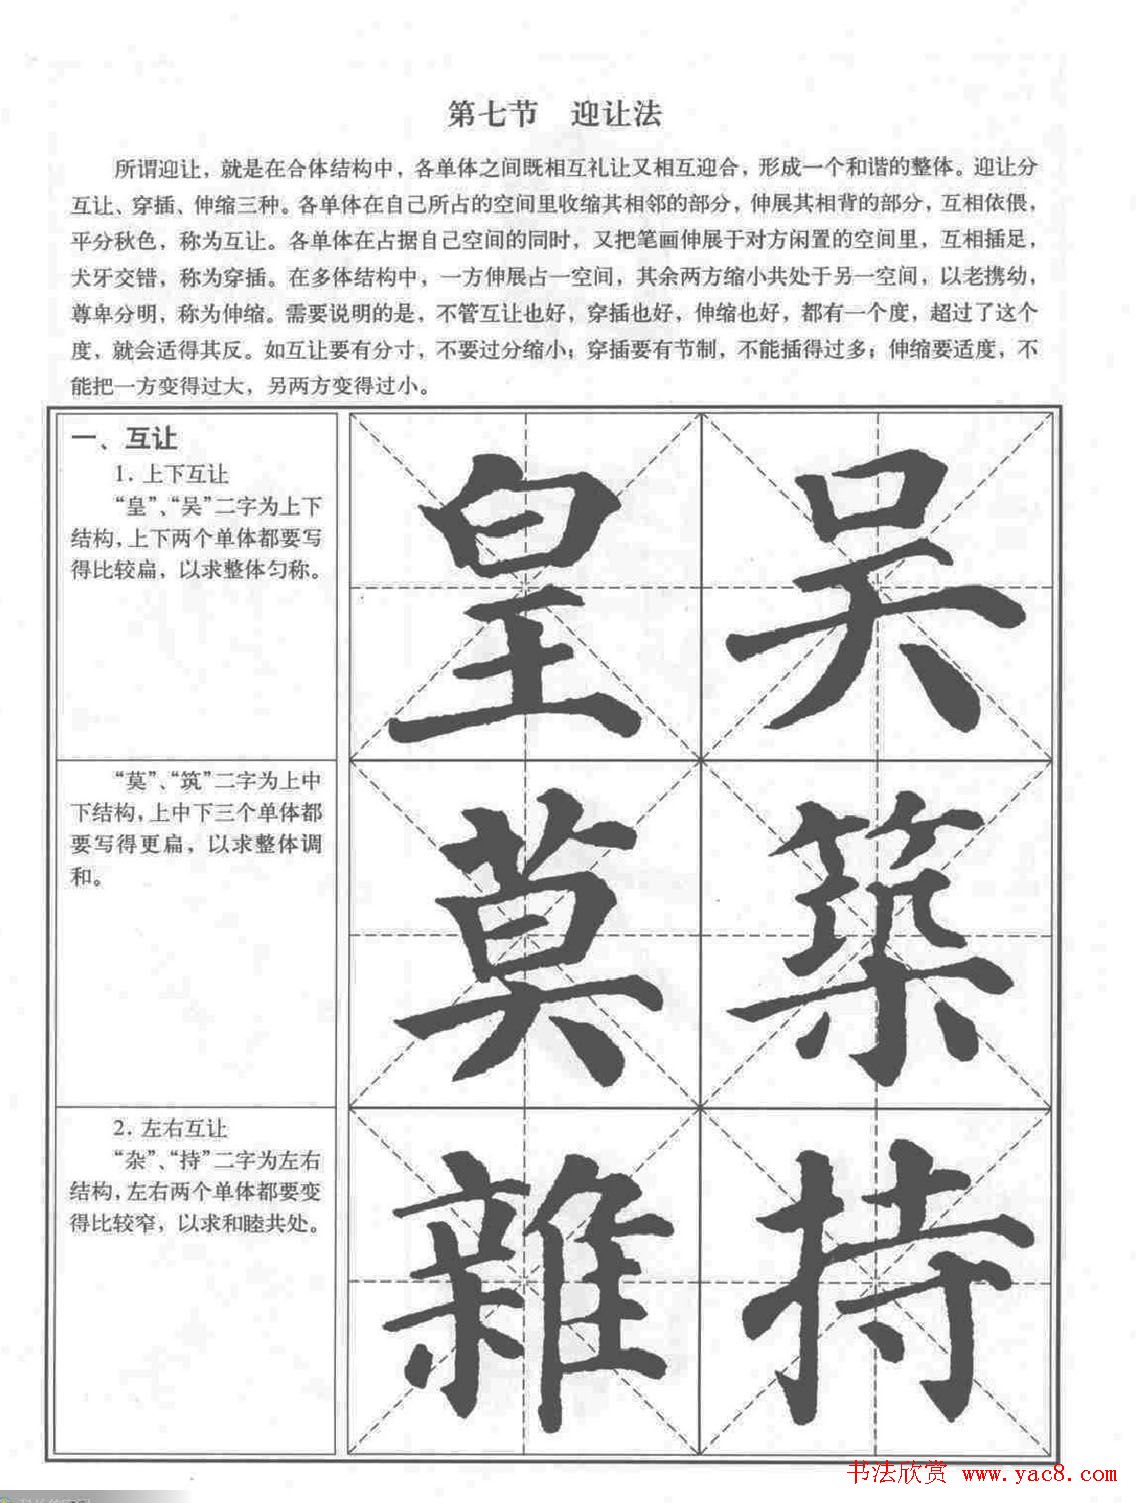 第七节　迎让法
所谓迎让，就是在合体结构中，各单体之间既相互礼让又相互迎合，形成一个和谐的整体。迎让分
互让、穿插、伸缩三种。各单体在自己所占的空间里收缩其相邻的部分，伸展其相背的部分，互相依偎，
平分秋色，称为互让。各单体在占据自己空间的同时，又把笔画伸展于对方闲置的空间里，互相插足，
犬牙交错，称为穿插。在多体结构中，一方伸展占一空间，其余两方缩小共处于另一空间，以老携幼，
尊卑分明，称为伸缩。需要说明的是，不管互让也好，穿插也好，伸缩也好，都有一个度，超过了这个
度，就会适得其反。如互让要有分寸，不要过分缩小；穿插要有节制，不能插得过多；伸缩要适度，不
能把一方变得过大，另两方变得过小。
一、互让
1. 上下互让
“皇”、“吴”二字为上下
结构，上下两个单体都要写
得比较扁，以求整体匀称。
皇 吴
“莫”、“筑”二字为上中
下结构，上中下三个单体都
要写得更扁，以求整体调
和。
莫 築
2. 左右互让
“杂”、“持”二字为左右
结构，左右两个单体都要变
得比较窄，以求和睦共处。
雜 持
书法欣赏 www.yac8.com